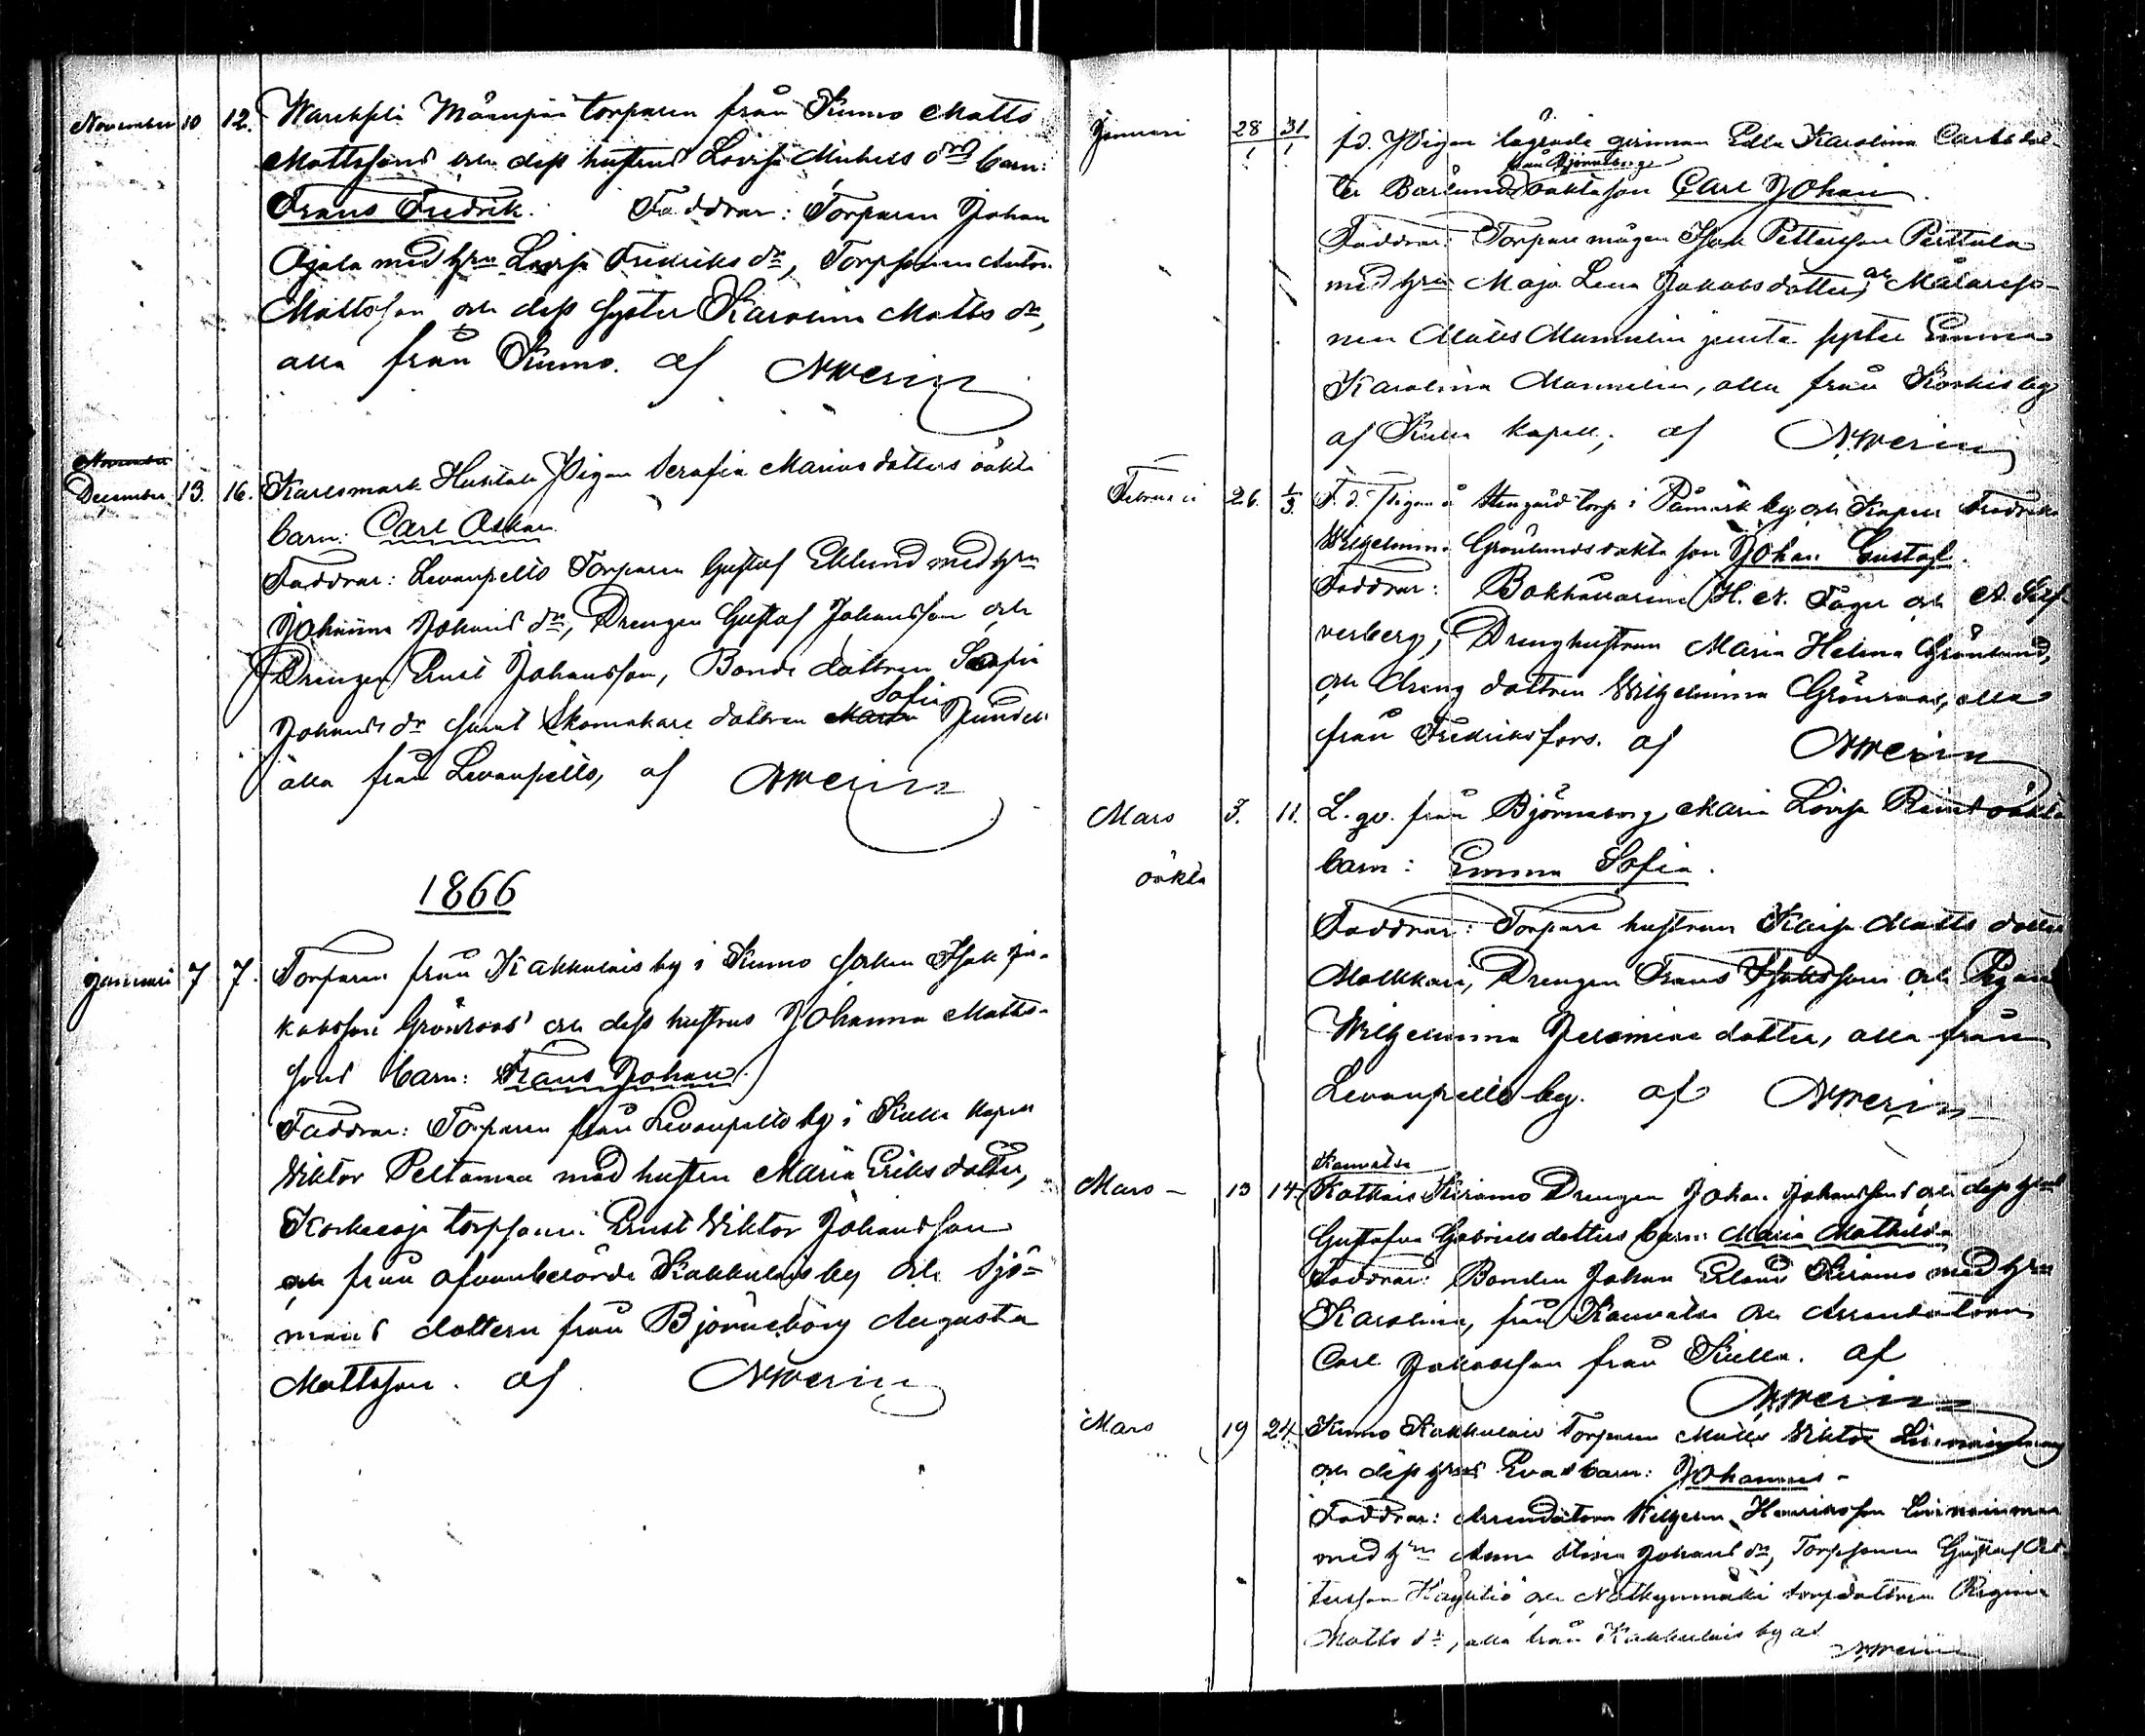 November 10 12. Mäenpää torparen från Kumo Matts
Mattssons och dess hustrus Lovisa Michels drs barn:
Frans Fredrik. Faddrar: Torparen Johan
Ojala med hru Lovisa Fredriks dr, Torpsonen Anton
Mattsson och dess syster Karolina Matts dr,
alla från Kumo. af Nwerin
November
December 13. 16. Karlsmark Pigan Serafia Marias dotters oäkta
barn: Carl Oskar.
Faddrar: Levanpelto Torparen Gustaf Eklund med hru
Johanna Johans dr, Drengen Gustaf Johansson och
Drengen Ernst Johansson, Bonde dottren
Sofia
Johans dr samt Skomakare dottren Maria
alla från Levanpelto, af Nwerin
1866
Januari 7 7. Torparen från Kakkulais by i Kumo socken Isak Ja-
kobsson Grönroos' och dess hustrus Johanna Matts-
sons barn: Frans Johan.
Faddrar: Torparen från Levanpelto by i Kulla kapell
Viktor Peltomaa med hustru Maria Eriksdotter,
Korkeaoja torpsonen Ernst Viktor Johansson
från ofvanberörde Kakkulais by och Sjö-
mans dottern från Björneborg Augusta
Mattsson. af Nwerin
Januari 28 31 fd. Pigan lägrade qvinnan Edla Karolina Carls dot-
från Björneborg
ter Barlunds oäkta son Carl Johan.
Faddrar: Torpare mågen Isak Pettersson Perttula
med hru Maja Lena Jakobsdotter, och Målareso-
nen Matts Mannelin jemte syster Emma
Karolina Mannelin, alla från Koskis by
af Kulla kapell, af Nwerin
Februari 26. 1/3. F. d. Pigan å Stengård torp i Påmark by och Kapell Fredrika
Wilhelmina Grönlunds oäkta son Johan Gustaf.
Faddrar: Bokhållarene H. A. Fager och A. Silf-
verberg, Drenghustrun Maria Helena Grönlund,
och dreng dottren Wilhelmina Grönroos, alla
från Fredriksfors. af Nwerin
Mars 3. 11. L. qv. från Björneborg Maria Lovisa oäkta
oäkta
barn: Emma Sofia.
Faddrar: Torpare hustrun Kaisa Matts dotter
Malkkari, Drengen Frans Isaksson och Pigan
Wilhelmina Jeremias dotter, alla från
Levanpelto by. af Nwerin
Kauvatsa
Mars 13 14. Kiramo Drengen Johan Johanssons och dess hrus
Gustafva Gabriels dotters barn: Maria Mathilda
Faddrar: Bonden Johan Erland Kiramo med hru
Karolina, från Kauvatsa och Arrendatorn
Carl Jakobsson från Kulla. af
Nwerin
Mars 19 24. Kumo Kakkulais Torparen Matts Viktor Liinainmaa
och dess hrus Evas barn: Johannes
Faddrar: Arrendatorn Vilhelm Henriksson Liinainmaa
med hru Anna Johans dr, Torpsonen Gustaf
och torpdottren Regina
Matts dr, alla från Kakkulais by af Nwerin